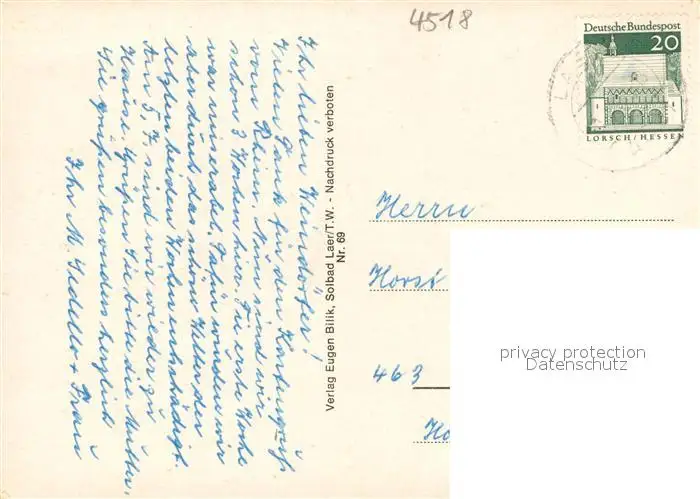 4518
Deutsche Bundespost
20
LORSCH/HESSEN
Ihr lieben Weindörfer!
Vielen Dank für den Kartengruß
vom Rhein. Nun sind wir
schon 3 Wochen hier. Die erste Woche
war miserabel. Dafür wurden wir
aber durch das schöne Wetter der
letzten beiden Wochen entschädigt.
Am 5.7. sind wir wieder zu
Hause. Grüßen Sie bitte die Mutter.
Sie grüßen besonders herzlich
Ihr M. + Frau
Verlag Eugen Bilik, Solbad Laer/T.W. - Nachdruck verboten
Nr. 69
Herrn
Horst
463
privacy protection
Datenschutz